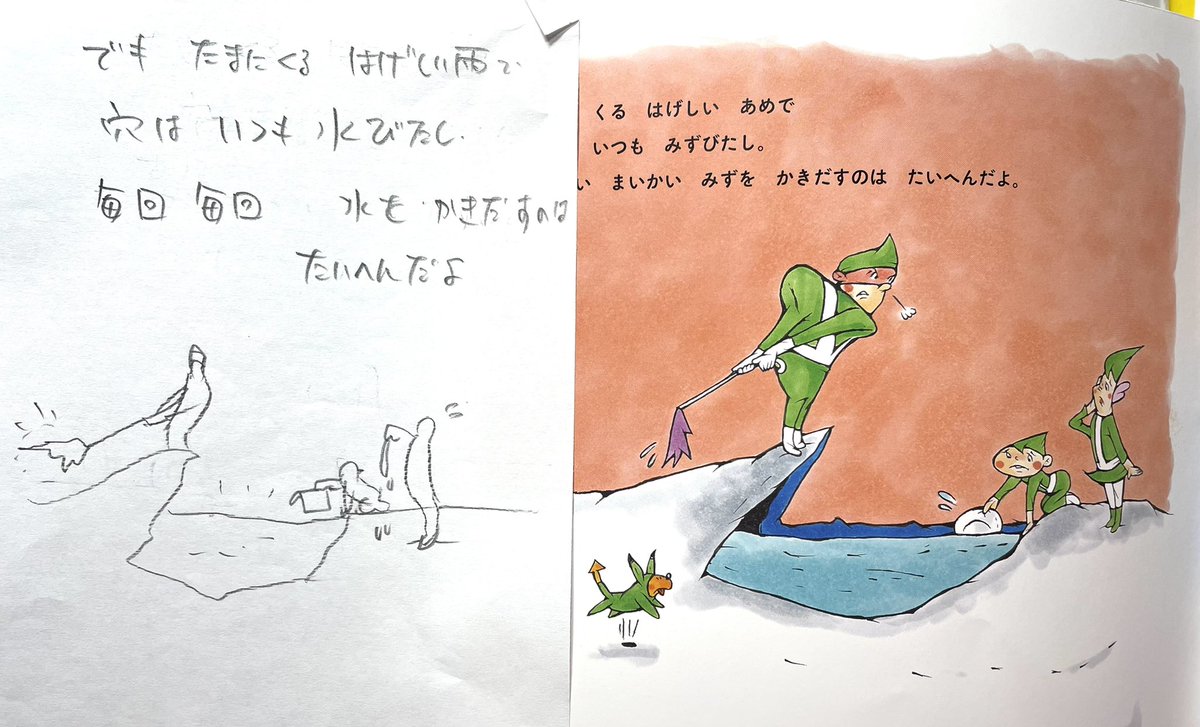 でも たまにくる はげしい雨で
穴は いつも 水びたし.
毎回 毎回 水を かきだすのは
たいへんだよ
くる はげしい あめで
いつも みずびたし。
い まいかい みずを かきだすのは たいへんだよ。